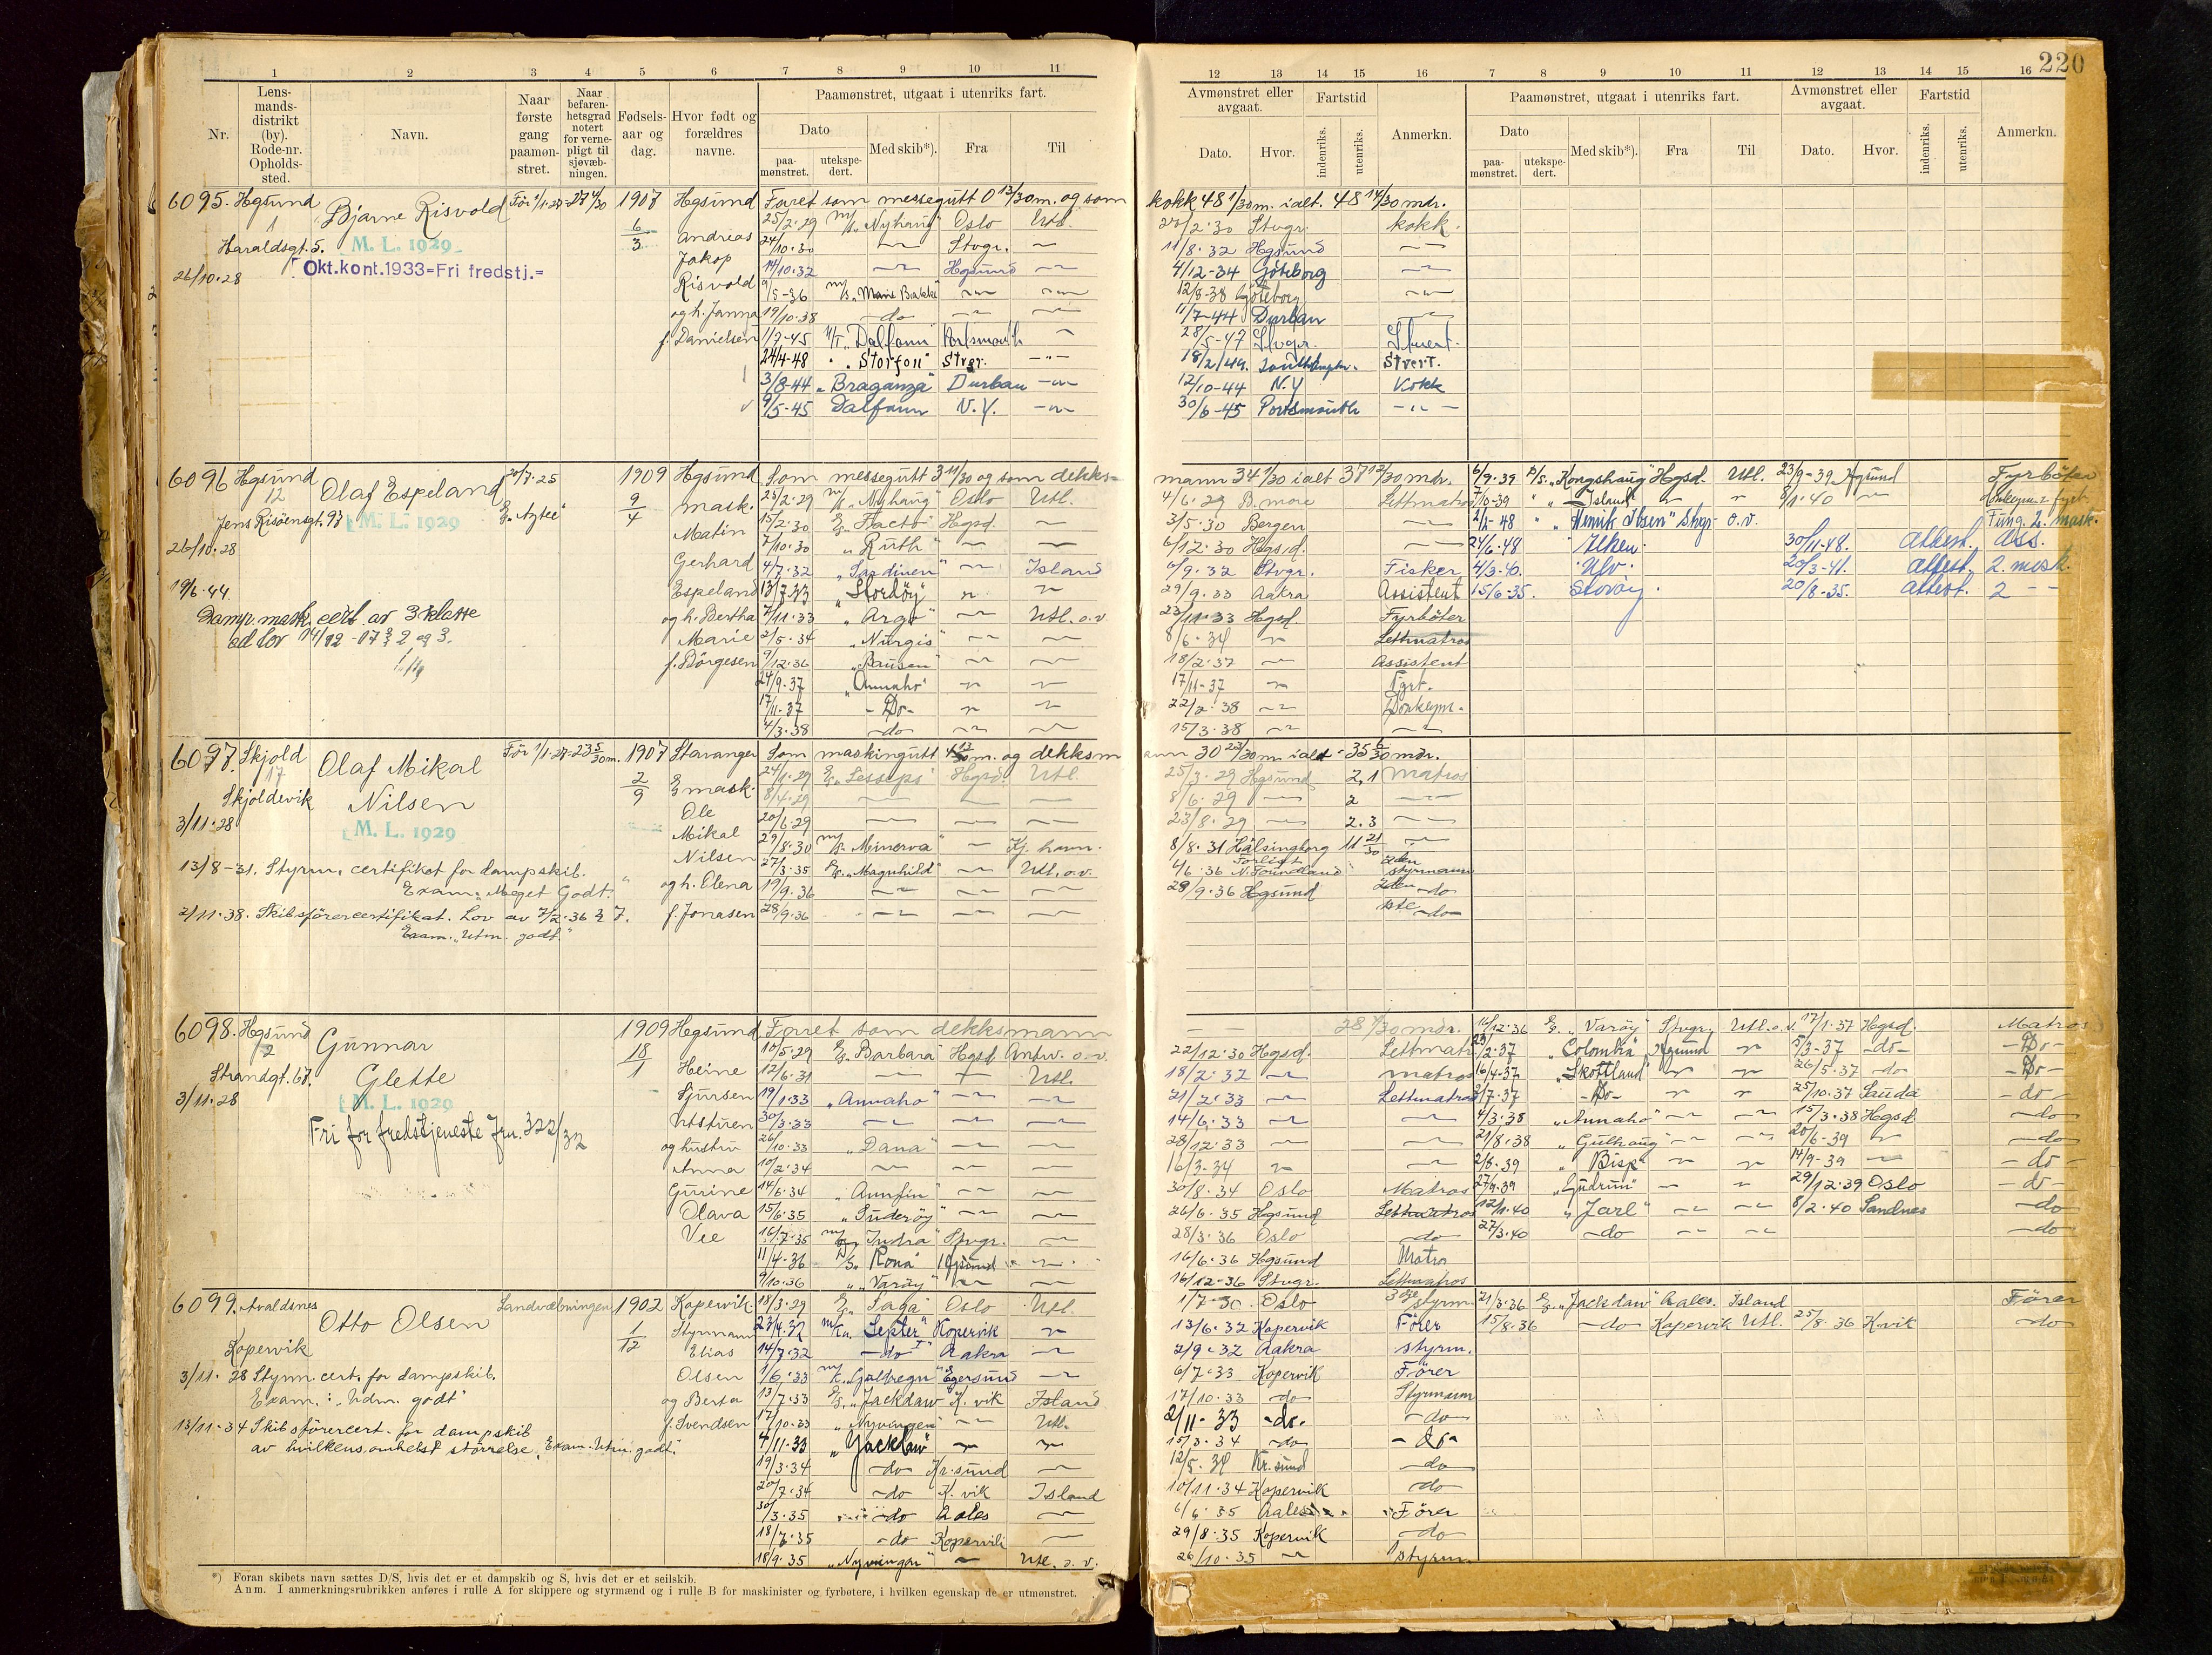 220
1 2 3 4 5 6 7 8 9 10 11
12 13 14 15 16 7 8 9 10 11 12 13 14 15 16
Nr.
Lens-
mands-
distrikt
(by).
Rode-nr.
Opholds-
sted.
Navn.
Naar
første
gang
paamøn-
stret.
Naar
befaren-
hetsgrad
notert
for verne-
pligt til
sjøvæb-
ningen.
Fødsels-
aar og
dag.
Hvor født og
forældres
navne.
Paamønstret, utgaat i utenriks fart.
Dato
paa-
mønstret.
utekspe-
dert.
Med skib*).
Fra
Til
Avmønstret eller
avgaat.
Dato.
Hvor.
Fartstid
indenriks.
utenriks.
Anmerkn.
Paamønstret, utgaat i utenriks fart.
Dato
paa-
mønstret.
utekspe-
dert.
Med skib*).
Fra
Til
Avmønstret eller
avgaat.
Dato.
Hvor.
Fartstid
indenriks.
utenriks.
Anmerkn.
6095. Hgsund
1
Haraldsgt. 5.
26/10.28
Bjarne Risvold
M. L. 1929
Okt.kont.1933=Fri fredstj.=
Før 1/1-27
1907
6/3
Hgsund
Andreas
Jakop
Risvold
og h. Janna
f. Danielsen
Faret som messegutt 0 13/30 m. og som
kokk 48 1/30 m. ialt. 48 14/30 mdr.
25/2.29 m/s „Nyhaug" Oslo Utl.
Stvgr. kokk.
24/10.30 Stvgr.
11/8.32 Hgsund
14/10.32 Hgsund
4/12-34 Göteborg
9/5-36 m/s „Marie Bakke"
12/8-38 Göteborg
19/10.38 do
11/7-44 Durban
1/9-45 M/T „Dalfonn" Portsmouth
28/5-47 Stvgr. Stuert.
24/4-48 " Storfon" Stvgr.
18/2/49. Stvert.
3/8-44 „Braganza" Durban
12/10-44 N.Y Kokk
9/5-45 Dalfonn N.Y.
30/6-45 Portsmouth
6096 Hgsund
12
Jens Risöensgt. 93
26/10.28
19/6.44
Damp. mask. cert. av 3 klasse
Olaf Espeland
M. L. 1929
20/7.25
1909
9/4
Hgsund
mask.
Matin
Gerhard
Espeland
og h. Bertha
Marie
f. Börgesen
Som messegutt 3 11/30 og som dekks=
mann 34 1/30 ialt 37 12/30 mdr.
25/2.29 m/s „Nyhaug" Oslo Utl.
4/6.29 B. more Lettmatros
15/2.30 Hgsd.
3/5.30 Bergen
7/10.30 „Ruth"
6/12.30 Hgsd.
4/7.32 „Sardinen" Island
Stvgr. Fisker
13/7.33 „Stordöy"
29/9.33 Aakra Assistent
7/11.33 „Argo" Utl. o.v.
23/11.33 Hgsd. Fyrböter
2/5.34 „Nurgis"
8/6.34 Lettmatros
9/12.36 „Bausen"
18/2.37 Assistent
24/9.37 „Annaho"
17/11-37 Fyrb.
17/11.37 -Do-
22/2.38 Donkeym.
4/3.38 do
15/3.38
6/9.39 D/S. „Kongshaug" Hgsd. Utl. 23/9-39 Hgsund Fyrböter
7/10-39 " Island" 8/1.40
2/2-48 " „Henrik Ibsen" Stvgr. o.v. Fung. 2. mask.
24/6.48 Alken. 30/11-48. attest. Ass.
4/3-40. Ulv. 20/3-41. attest. 2. mask.
15/6-35. Storöy. 20/8-35. attest. 2 - -
6097. Skjold
17
Skjoldevik
3/11.28
Olaf Mikal
Nilsen
M. L. 1929
Før 1/1-27
1907
2/9
Stavanger
mask.
Ole
Mikal
Nilsen
og h. Elena
f. Jonasen
13/8-31. Styrm. certifikat for dampskib.
Exam. „Meget Godt.
2/11.38. Skibsförercertifikat. Lov av 7/2.36 § 7.
Exam. „Utm. godt."
Som maskingutt 4 13/30 m. og dekksm
ann 30 23/30 m. ialt = 35 6/30 mdr.
24/1.29 „Lesseps" Hgsd. Utl.
25/3.29 Hgsund 2,1 Matros
8/4.29
8/6.29 2
20/6.29
23/8.29 2.3
29/8.30 m/s. Minerva" Kj. havn.
8/8.31 Hälsingborg 11 21/30
27/3.35 „Magnhild" Utl. o.v.
Forlist 2den
4/6.36 N. Foundland styrmann
19/9.36
28/9.36 Hgsund 2den do
28/9.36
1ste do
6098. Hgsund
2
Strandgt. 67.
3/11.28
Gunnar
Glette
M. L. 1929
Fri for fredstjeneste Jrn. 322/32
1909
18/1
Hgsund
Heine
Sjursen
Utstuen
og hustru
Anna
Gurine
Olava
Vee
Faret som dekksmann
28 1/30 mdr.
10/5.29 „Barbara" Hgsd Antw. o.v.
22/12.30 Hgsd. Lettmatr
12/6.31 Utl.
18/2.32 matros
19/1.33 „Annaho"
21/2.33 Lettmatros
30/3.33
14/6.33
26/10.33 „Dana"
28/12.33
10/2.34
16/3-34
14/6.34 „Annfin"
30/8.34 Oslo Matros
15/6.35 „Suderöy"
26/6.35 Hgsund Lettmatros
16/7.35 „Indra" Stvgr.
28/3.36 Oslo do
11/4-36 D/S. „Rona" Hgsund
16/6.36 Hgsund Matro
9/10.36 „Varöy"
16/12-36 Stvgr. Lettmatros
16/12.36 „Varöy" Stvgr. Utl. o.v. 17/1.37 Hgsd. Matros
„Colombia" Hgsund 5/3-37 -do- -Do-
6/4-37 „Skottland" 26/5.37 do -Do-
2/7-37 -Do- 25/10.37 Sauda -do-
4/3.38 „Annaho" 15/3.38 Hgsd. do
21/8.38 „Gulhaug" 20/6-39 do
2/8.39 „Bisp" 14/9-39 -do-
27/9.39 „Gudrun" 29/12.39 Oslo -do-
12/1.40 „Jarl" 8/2.40 Sandnes do
27/3.40 do do
6099. Avaldsnes
Kopervik
Otto Olsen
Landvæbningen
1902
1/12
Kopervik.
Styrmann
Elias
Olsen
og Berta
f. Svendsen
3/11.28 Styrm. cert. for dampskib.
Exam.: „Udm. godt"
13/11-34 Skibsförercert. for dampskib
av hvilkensomhelst störrelse. Exam. Utm. godt."
18/3.29 „Saga" Oslo Utl.
1/7-30. Oslo 3dje styrm.
23/4.32 „Septer" Kopervik
13/6.32 Kopervik Förer
14/7.32 do Aakra
2/9-32 Aakra styrm.
1/6.33 Egersund
6/7-33 Kopervik Förer
13/7.33 „Jackdaw" K. vik Island
17/10.33 do Styrmann
17/10.33 „Nyvingen" Utl.
2/11-33 -do- do
4/11.33 „Jackdaw"
15/3.34 do do
19/3.34 do Kr.sund
12/5.34 Kr.sund do
20/7.34 do K. vik Island
10/11.34 Kopervik do
30/3.35 do Aales
6/6.35 Aales Förer
18/7.35 do Kopervik
29/8.35 Kopervik do
18/9.35 „Nyvingen" Utl. o.v.
26/10.35 styrm.
21/3.36 „Jackdaw" Aales. Island Förer
15/8.36 do Kopervik Utl. 25/8.36 K.vik do
*) Foran skibets navn sættes D/S, hvis det er et dampskib og S, hvis det er et seilskib.
Anm. I anmerkningsrubrikken anføres i rulle A for skippere og styrmænd og i rulle B for maskinister og fyrbøtere, i hvilken egenskap de er utmønstret.